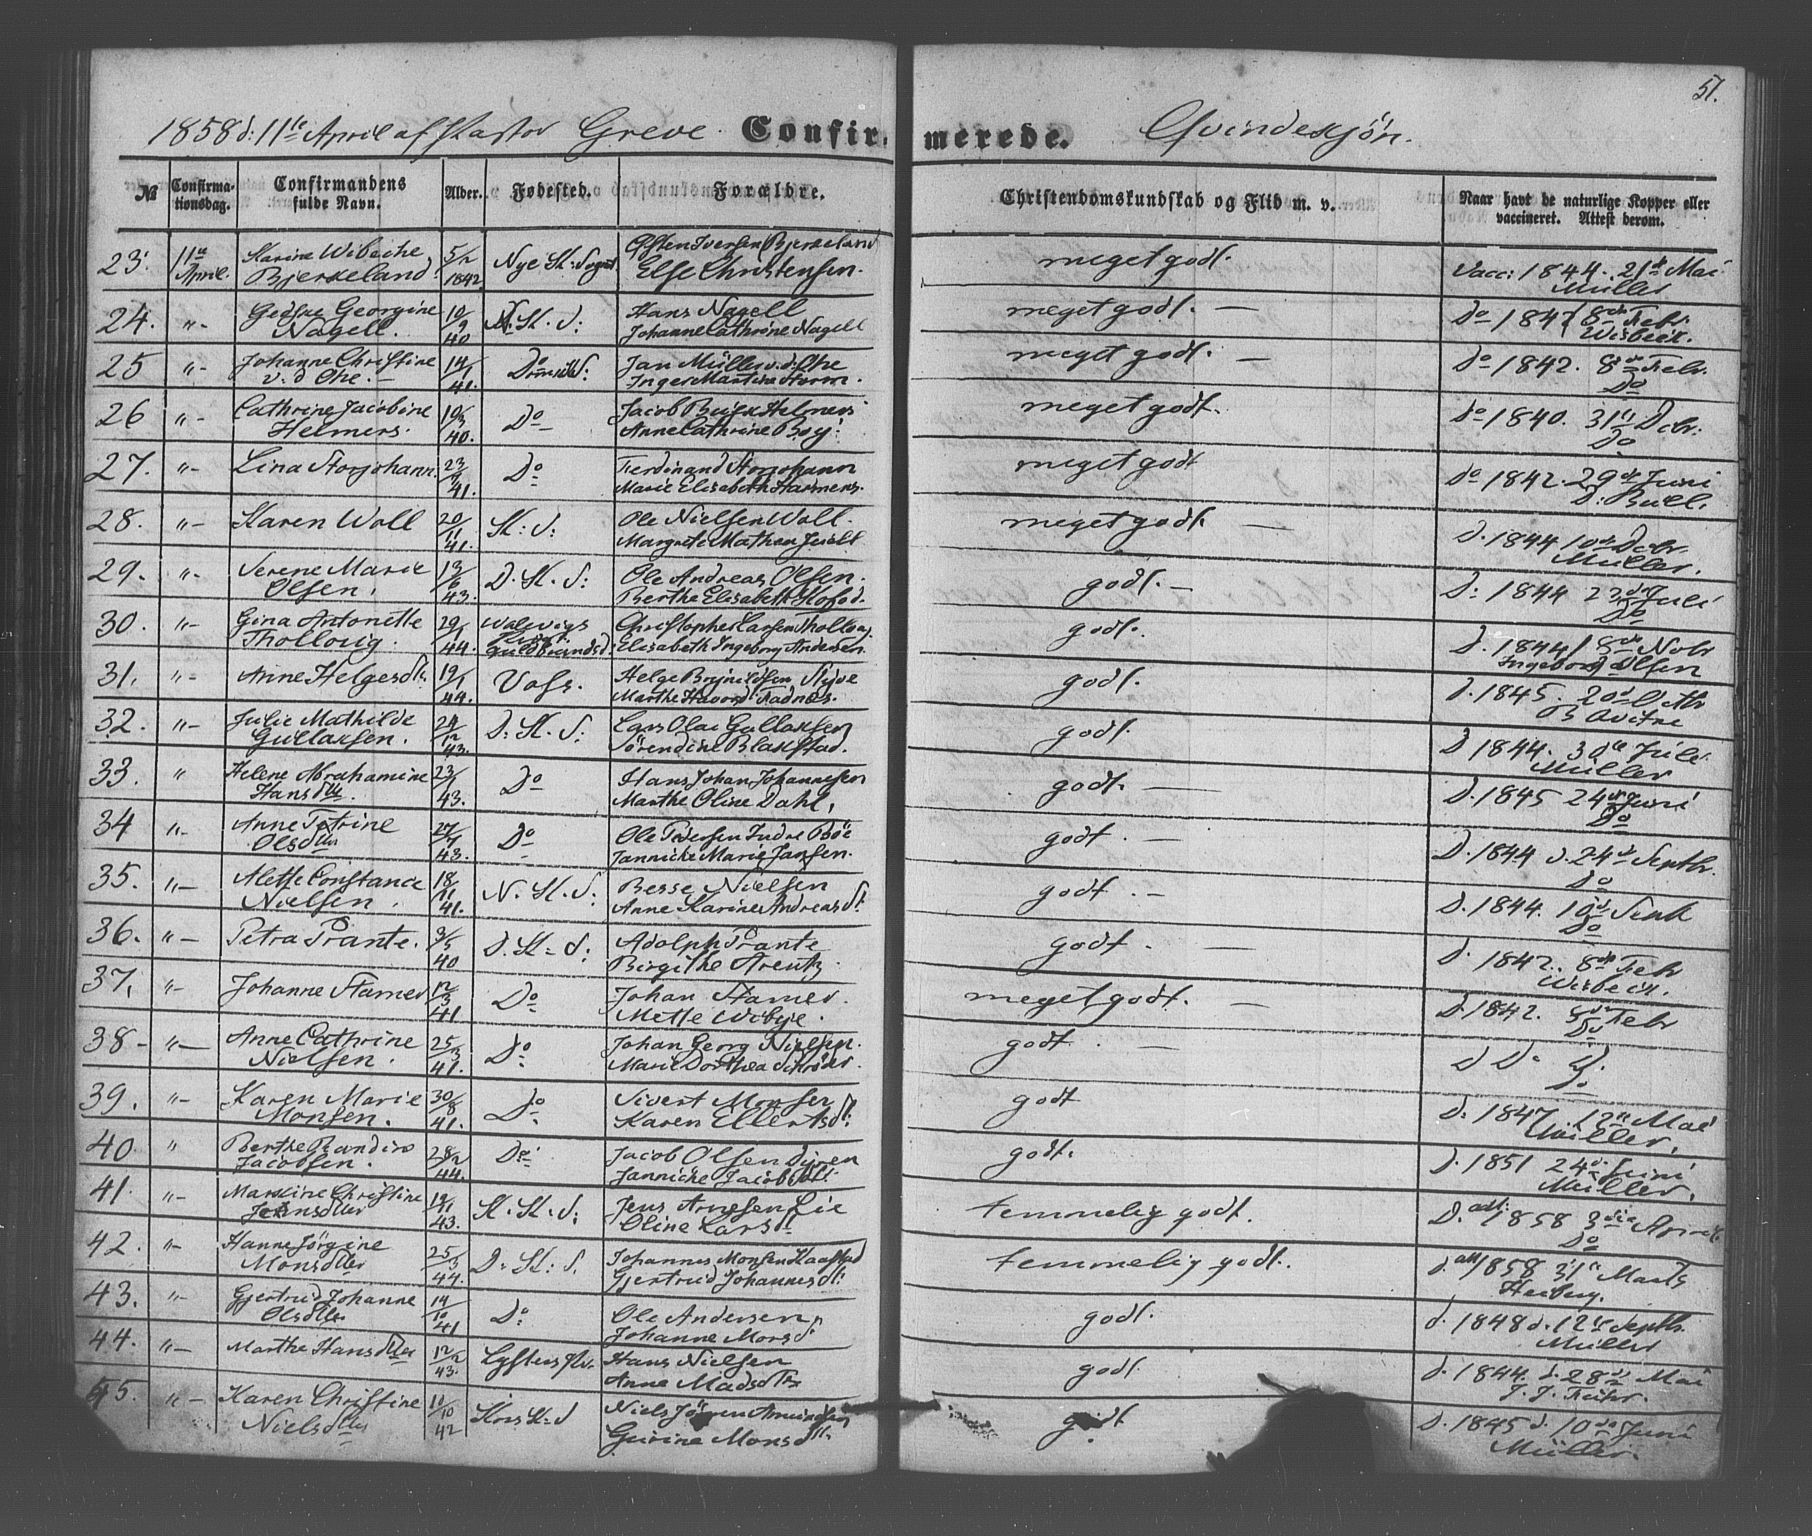 51.
1858 d: 11te April af Pastor Greve. Confirmerede. Qvindekjön.
№ Confirmationsdag. Confirmandens fulde Navn. Alder. Fødested. Forældre. Christendomskundskab og Flid m. v. Naar havt de naturlige Kopper eller vaccineret. Attest derom.
23. 11te April. Karine Wibeche Bjerkeland 5/2 1842 Nye K: Sogn Iversen Bjerkeland Else Christensen. meget godt. Vacc: 1844. 21de Mai Müller
24. "- Georgine Nagell. 10/9 40 N. K. S: Hans Nagell Johanne Cathrine Nagell meget godt. — Do 1842 8de Febr. Wisbeck.
25 "- Johanne Christine v. d Ohe. — 14/1 41. Domk S: Jan Müller v. d. Ohe Inger Martine Storm. meget godt. — Do 1842. 8de Febr. Do
26 "- Cathrine Jacobine Helmers. 10/3 40. Do Jacob Helmers Anne Cathrine Boy: meget godt. Do 1840. 31te Dcbr: Do
27. "- Lina Storjohann. 23/9 41. Do Ferdinand Storjohann Marie Elisabeth Harmens. meget godt do 1842. 29de Juni D. Bull.
28. "- Karen Woll 20/11 41. K: S: Ole Nielsen Woll. Margrete Mathea meget godt. — D. 1844 10de Dcbr Müller.
29. "- Serene Marie Olsen. 13/6 43. D. K. S: Ole Andreas Olsen. Berthe Elisabeth Kofod. godt. — D: 1844 23de Juli Do
30. "- Gina Antonette Tholloug. 29/1 44. Guldbrandsd: Christopher Larsen Tholloug. Elisabeth Ingeborg Andersen. godt. D. 1844 18de Nobr Ingeborg Olsen
31. "- Anne Helgesdtr. 19/1 44. Voss. Helge Brynildsen Styve Marthe Fadnes. godt. D. 1845. 20de Octbr
32. "- Julie Mathilde Gullaksen. 24/12 43. D. K. S: Lars Olai Gullaksen Sörendine Blakstad. godt. D 1844. 30te Juli Müller
33. " Helene Abrahamine Hansdtter. 43. Do Hans Johan Johannesen Marthe Oline Dahl. godt. — D. 1845 24de Juni Do
34 "- Anne Petrine Olsdtter 43. Do Ole Pedersen Indre Böe Jannicke Marie Jansen. godt. D. 1844 d. 24de Septbr. Do
35. "- Alette Constance Nielsen. 18/11 41. N. K. S: Besse Nielsen Anne Karine Andreasdt: godt. — D. 1844. 10de Do
36. "- Petra Prante. 3/5 40 D. K. S: Adolph Prante Birgithe Arentz. godt. — D. 1842. 8de Febr Wisbeck.
37. "- Johanne Stamer 12/3 41 Do Johan Stamer. Mette Wibye. meget godt. — D. 1842. 8de Febr Do
38- "- Anne Cathrine Nielsen. 25/3 41. Do Johan Georg Nielsen. Marie Dorthea Schröder. godt. — D Do D. Do
39. "- Karen Marie Monsen. 30/8 41. Do Sivert Monsen Karen Ellertsdt: godt D. 1847 12te Mai Müller.
40. " Berthe Jacobsen. 28/2 44. Do Jacob Olsen Jannicke Jacobsdt. godt. D. 1851 24de Juni Müller.
41. "- Christine Jensdtter 19/1 43. K. K. S: Jens Arnesen Lie Oline Larsdt. temmelig godt. D. att: 1858 3die April. Do
42. "- Hanne Jörgine Monsdtter 25/3 44. D. K: S. Johannes Monsen Haastad Gjertrud Johannesdt: temmelig godt. d. att 1858 31te Marts Heiberg.
43. "- Gjertrud Johanne Olsdtter 14/10 41 Do Ole Andersen Johanne Monsdt godt. d. 1848 d. 12te Septbr. Müller
44. "- Marthe Hansdtter 12/2 43. Lysters Hans Nielsen Anne Madsdtr godt D. 1844. d. 28de Mai J. J. Führ.
45. "- Karen Christine Nielsdtter 11/10 42 Kors K. S Niels Jörgen Amundsen Gurine Monsdtr godt D. 1845 d. 10de Juni Müller.